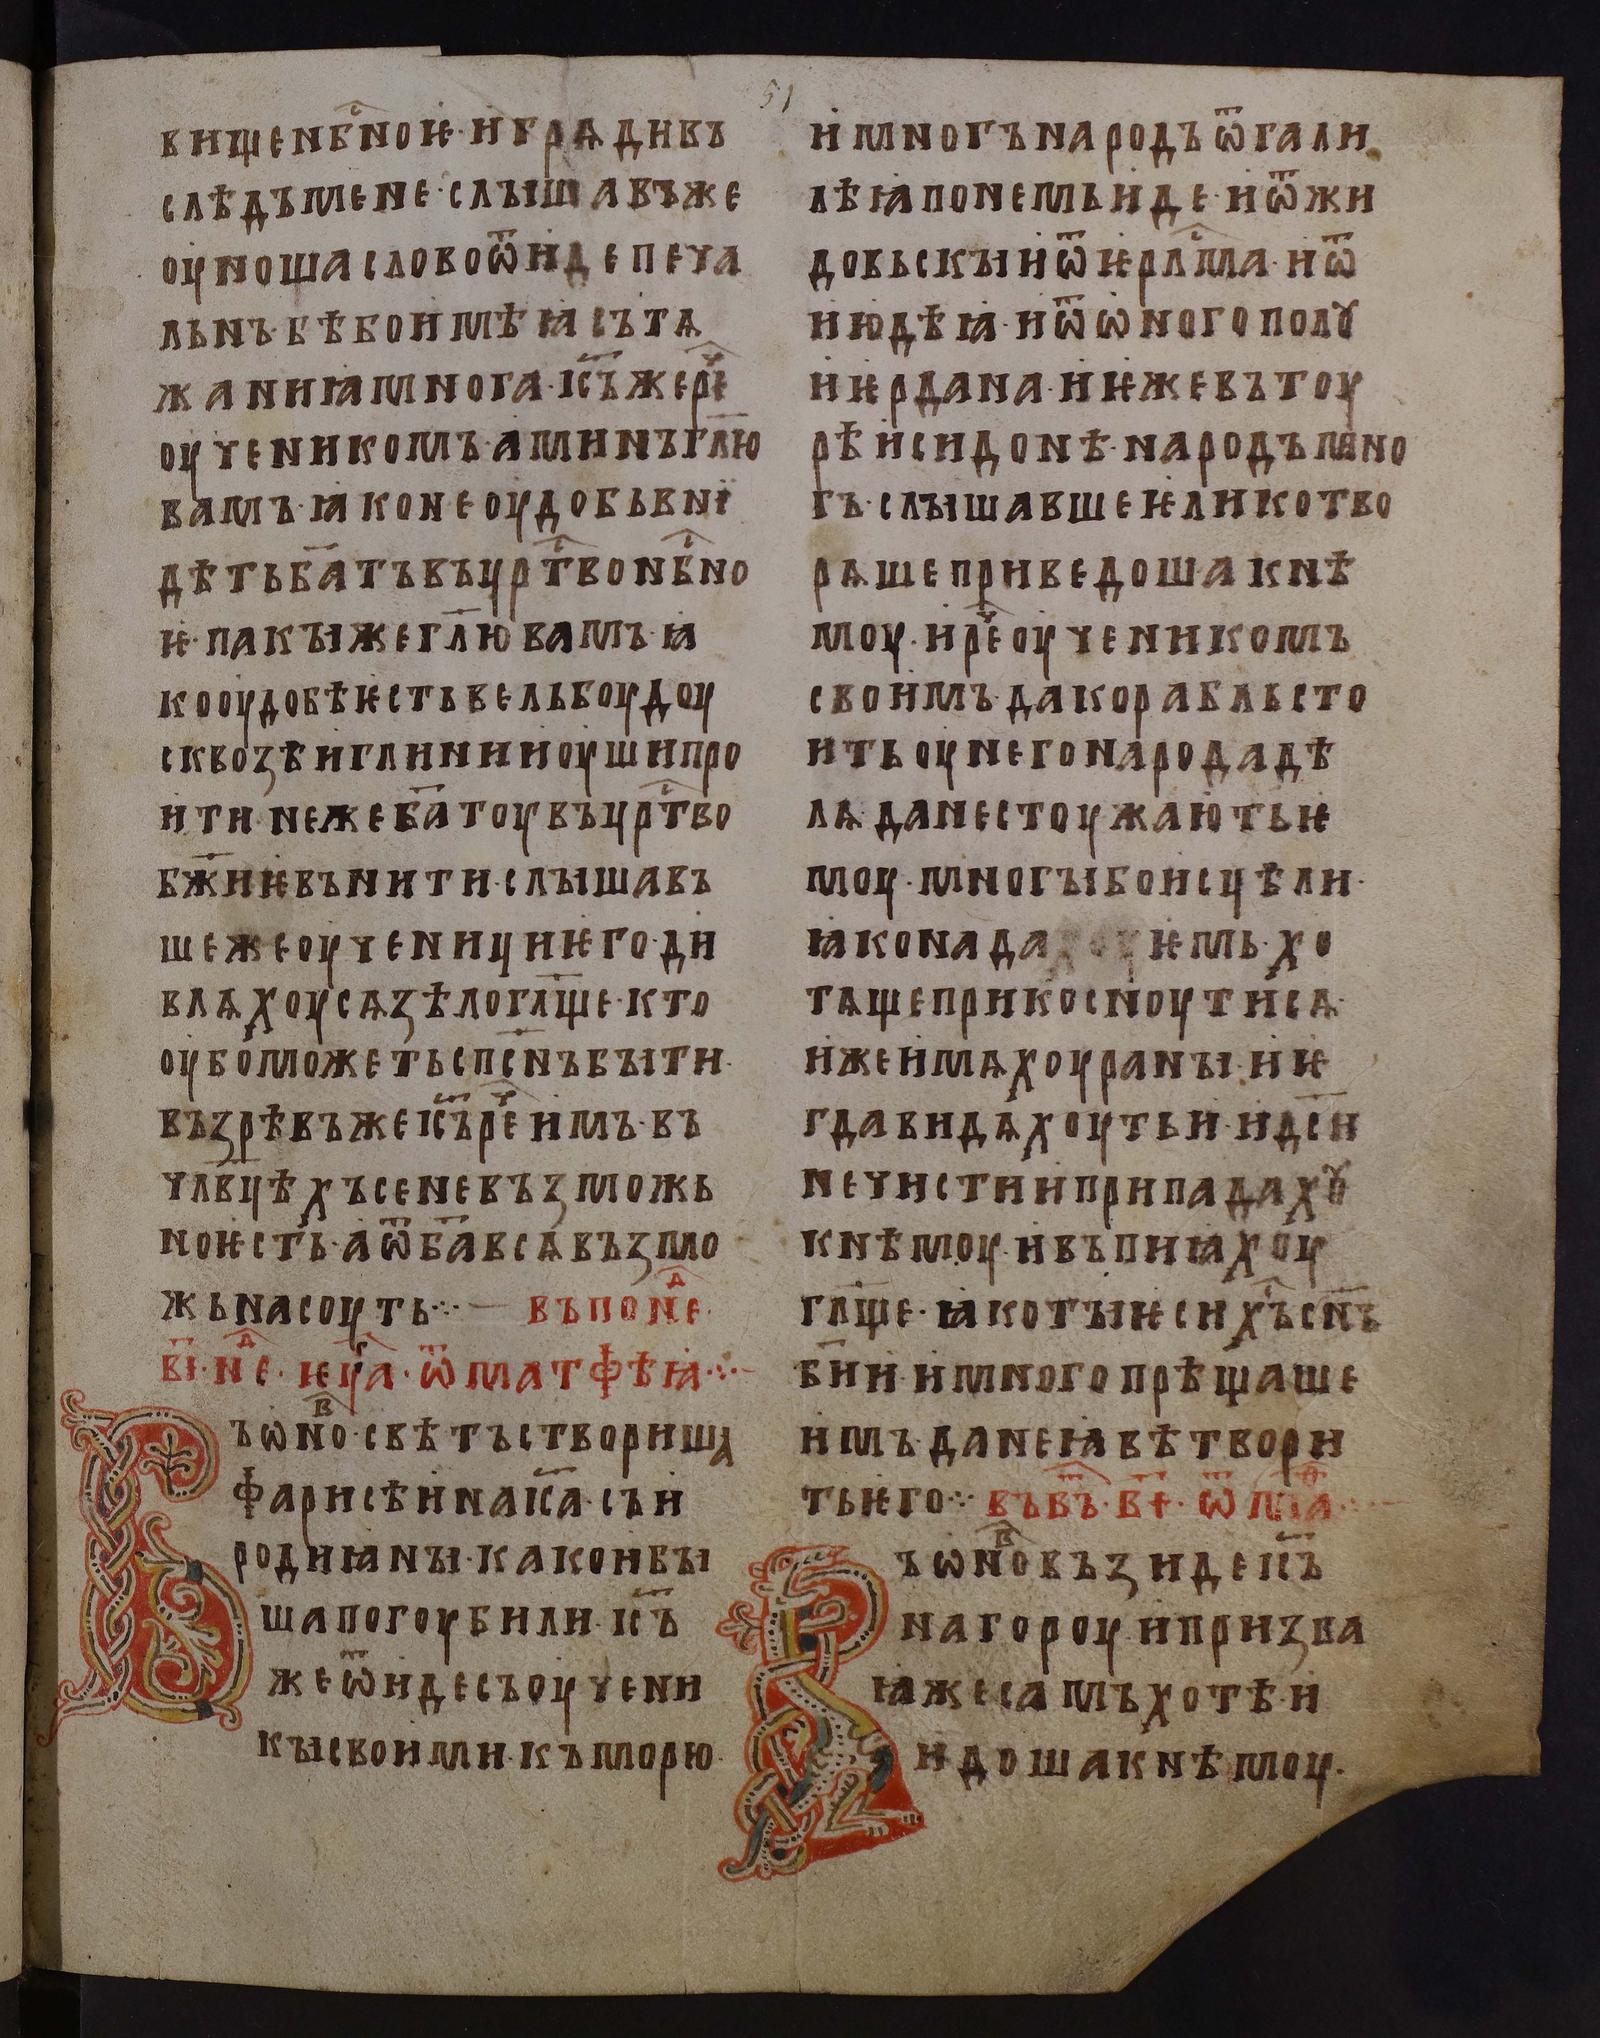 51
вищенбⷭ҇ноѥ· и грѧди въ
слѣдъ мене· слышавъ же
оуноша слово ѿиде печа
льнъ· бѣ бо имѣꙗ сътѧ
жаниꙗ многа· іс҃ъ же реⷱ҇
оученикомъ· аминъ гл҃ю
вамъ· ꙗко не оудобь вни
дѣть ба҃тъ въ црⷭ҇тво нбⷭ҇но
ѥ· пакы же гл҃ю вамъ· ꙗ
ко оудобѣѥ сть вельбоудоу
сквозѣ иглинии оуши про
ити· неже ба҃тоу въ црⷭ҇тво
бж҃иѥ вънити· слышавъ
ше же оученици ѥго· ди
влѧхоу сѧ зѣло гл҃ще· кто
оубо можеть спс҃нъ быти·
възрѣвъ же іс҃ъ реⷱ҇ имъ· въ
чл҃вцѣхъ се невъзможь
но ѥсть· а ѿ ба҃ всѧ възмо
жьна соуть·:· — въ понеⷣ·
в҃і· неⷣ· ѥуⷢ҇а· ѿ матфѣꙗ·:·
Въ ѡноⷡ· свѣтъ створиша
фарисѣи на іс҃а· сън
родниꙗны· како и бы
ша погоубили· іс҃ъ
же ѿиде съ оучени
кы своими· къ морю·
и многъ народъ ѿ гали
лѣꙗ по немь иде· и ѿ жи
довьскы и ѿ ѥрлⷭ҇ма· и ѿ
июдѣꙗ· и ѿ ѡного полꙋ
иѥрдана· и ѥже въ тоу
рѣ и сидонѣ· народъ мно
гъ· слышавше ѥлико тво
рѧше приведоша к нѣ
моу· и реⷱ҇ оученикомъ
своимъ· да корабль сто
ить оу него народа дѣ
лѧ· да не стоужають ѥ
моу· многы бо исцѣли·
ꙗко нападахоу ѥмь· хо
тѧще прикосноути сѧ·
иже имѧхоу раны· и ѥ
гда видѧхоуть и· и дс҃и
нечистии припадахꙋ
к нѣмоу· и въпиꙗхоу
гл҃ще· ꙗко ты ѥси хⷭ҇ъ сн҃ъ
бж҃ии· и много прѣщаше
имъ· да не ꙗвѣ твори
ть ѥго·:· въ въⷮ· в҃і· ѿ маⷴ·
Въ ѡноⷡ възиде іс҃ъ
на гороу· и призва
ꙗже самъ хотѣ· и
идоша к нѣмоу·